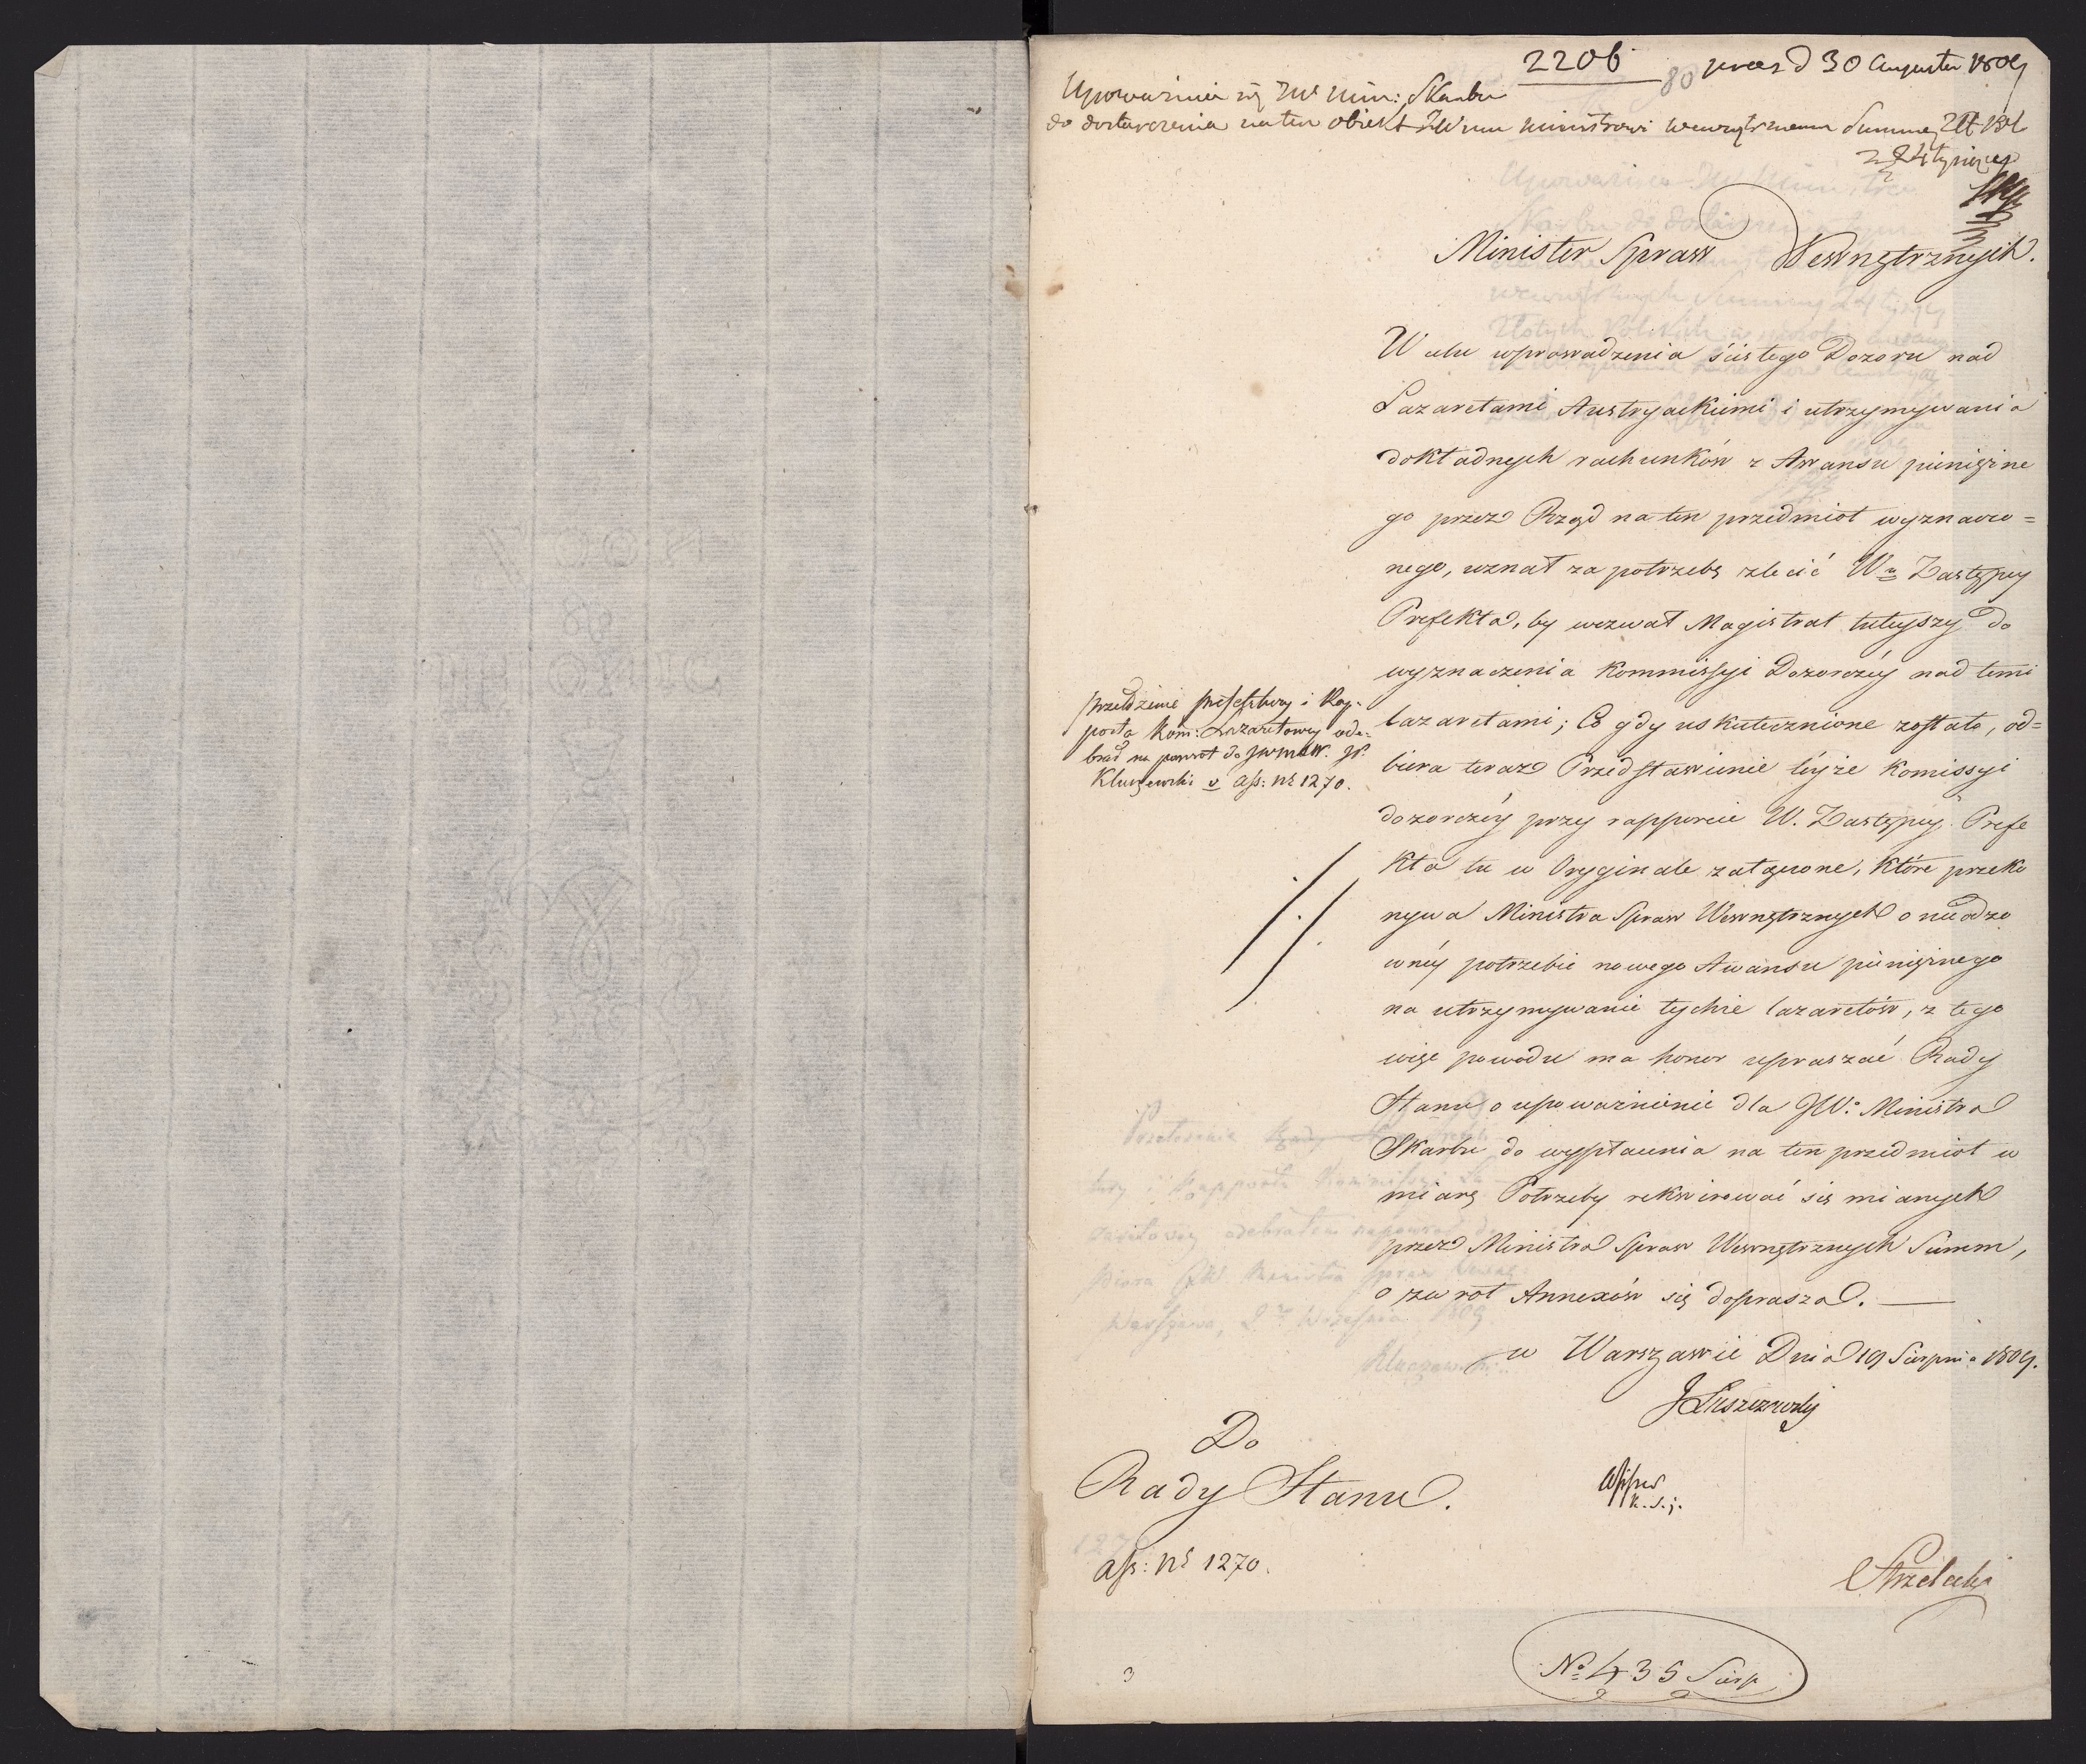 2206
80 praes d 30 Augusta 1809
Upoważnia się JW Min: Skarbu
do dostarczenia na ten obiekt JWmu Ministrowi wewnętrznemu Summę Złt Pol
24 tysięcy
Minister Spraw Wewnętrznych.
W celu wprowadzenia ścisłego Dozoru nad
Lazaretami Austryackiemi i utrzymywania
dokładnych rachunków z Awansu pieniężne
go przez Rząd na ten przedmiot wyznaczo=
nego, uznał za potrzebę zlecić Wu Zastępcy
Prefekta, by wezwał Magistrat tuteyszy do
wyznaczenia Kommissyi Dozorczéy nad temi
lazaretami; Co gdy uskutecznione zostało, od=
biera teraz Przedstawienie téyże Komissyi
dozorczéy przy rapporcie W. Zastępcy Prefe
kta tu w Oryginale załączone, które przeko
nywa Ministra Spraw Wewnętrznych o nieodzo
wnéy potrzebie nowego Awansu pieniężnego
na utrzymywanie tychże lazaretów, z tego
więc powodu ma honor upraszać Rady
Stanu o upoważnienie dla JW: Ministra
Skarbu do wypłacenia na ten przedmiot w
miarę Potrzeby rekwirować się mianych
przez Ministra Spraw Wewnętrznych Summ,
o zwrot Annexów się doprasza.
w Warszawie Dnia 19 Sierpnia 1809.
J Łuszczewski
przełożenie prefektury i Rap-
porta Kom: Lazaretowey ode=
brał na powrót do JWMSW. JP.
Kluczewski v ass: Nr 1270.
Do
Rady Stanu.
k. s. j.
ass: Nr 1270.
Strzelecki
No 435 Sierp
3